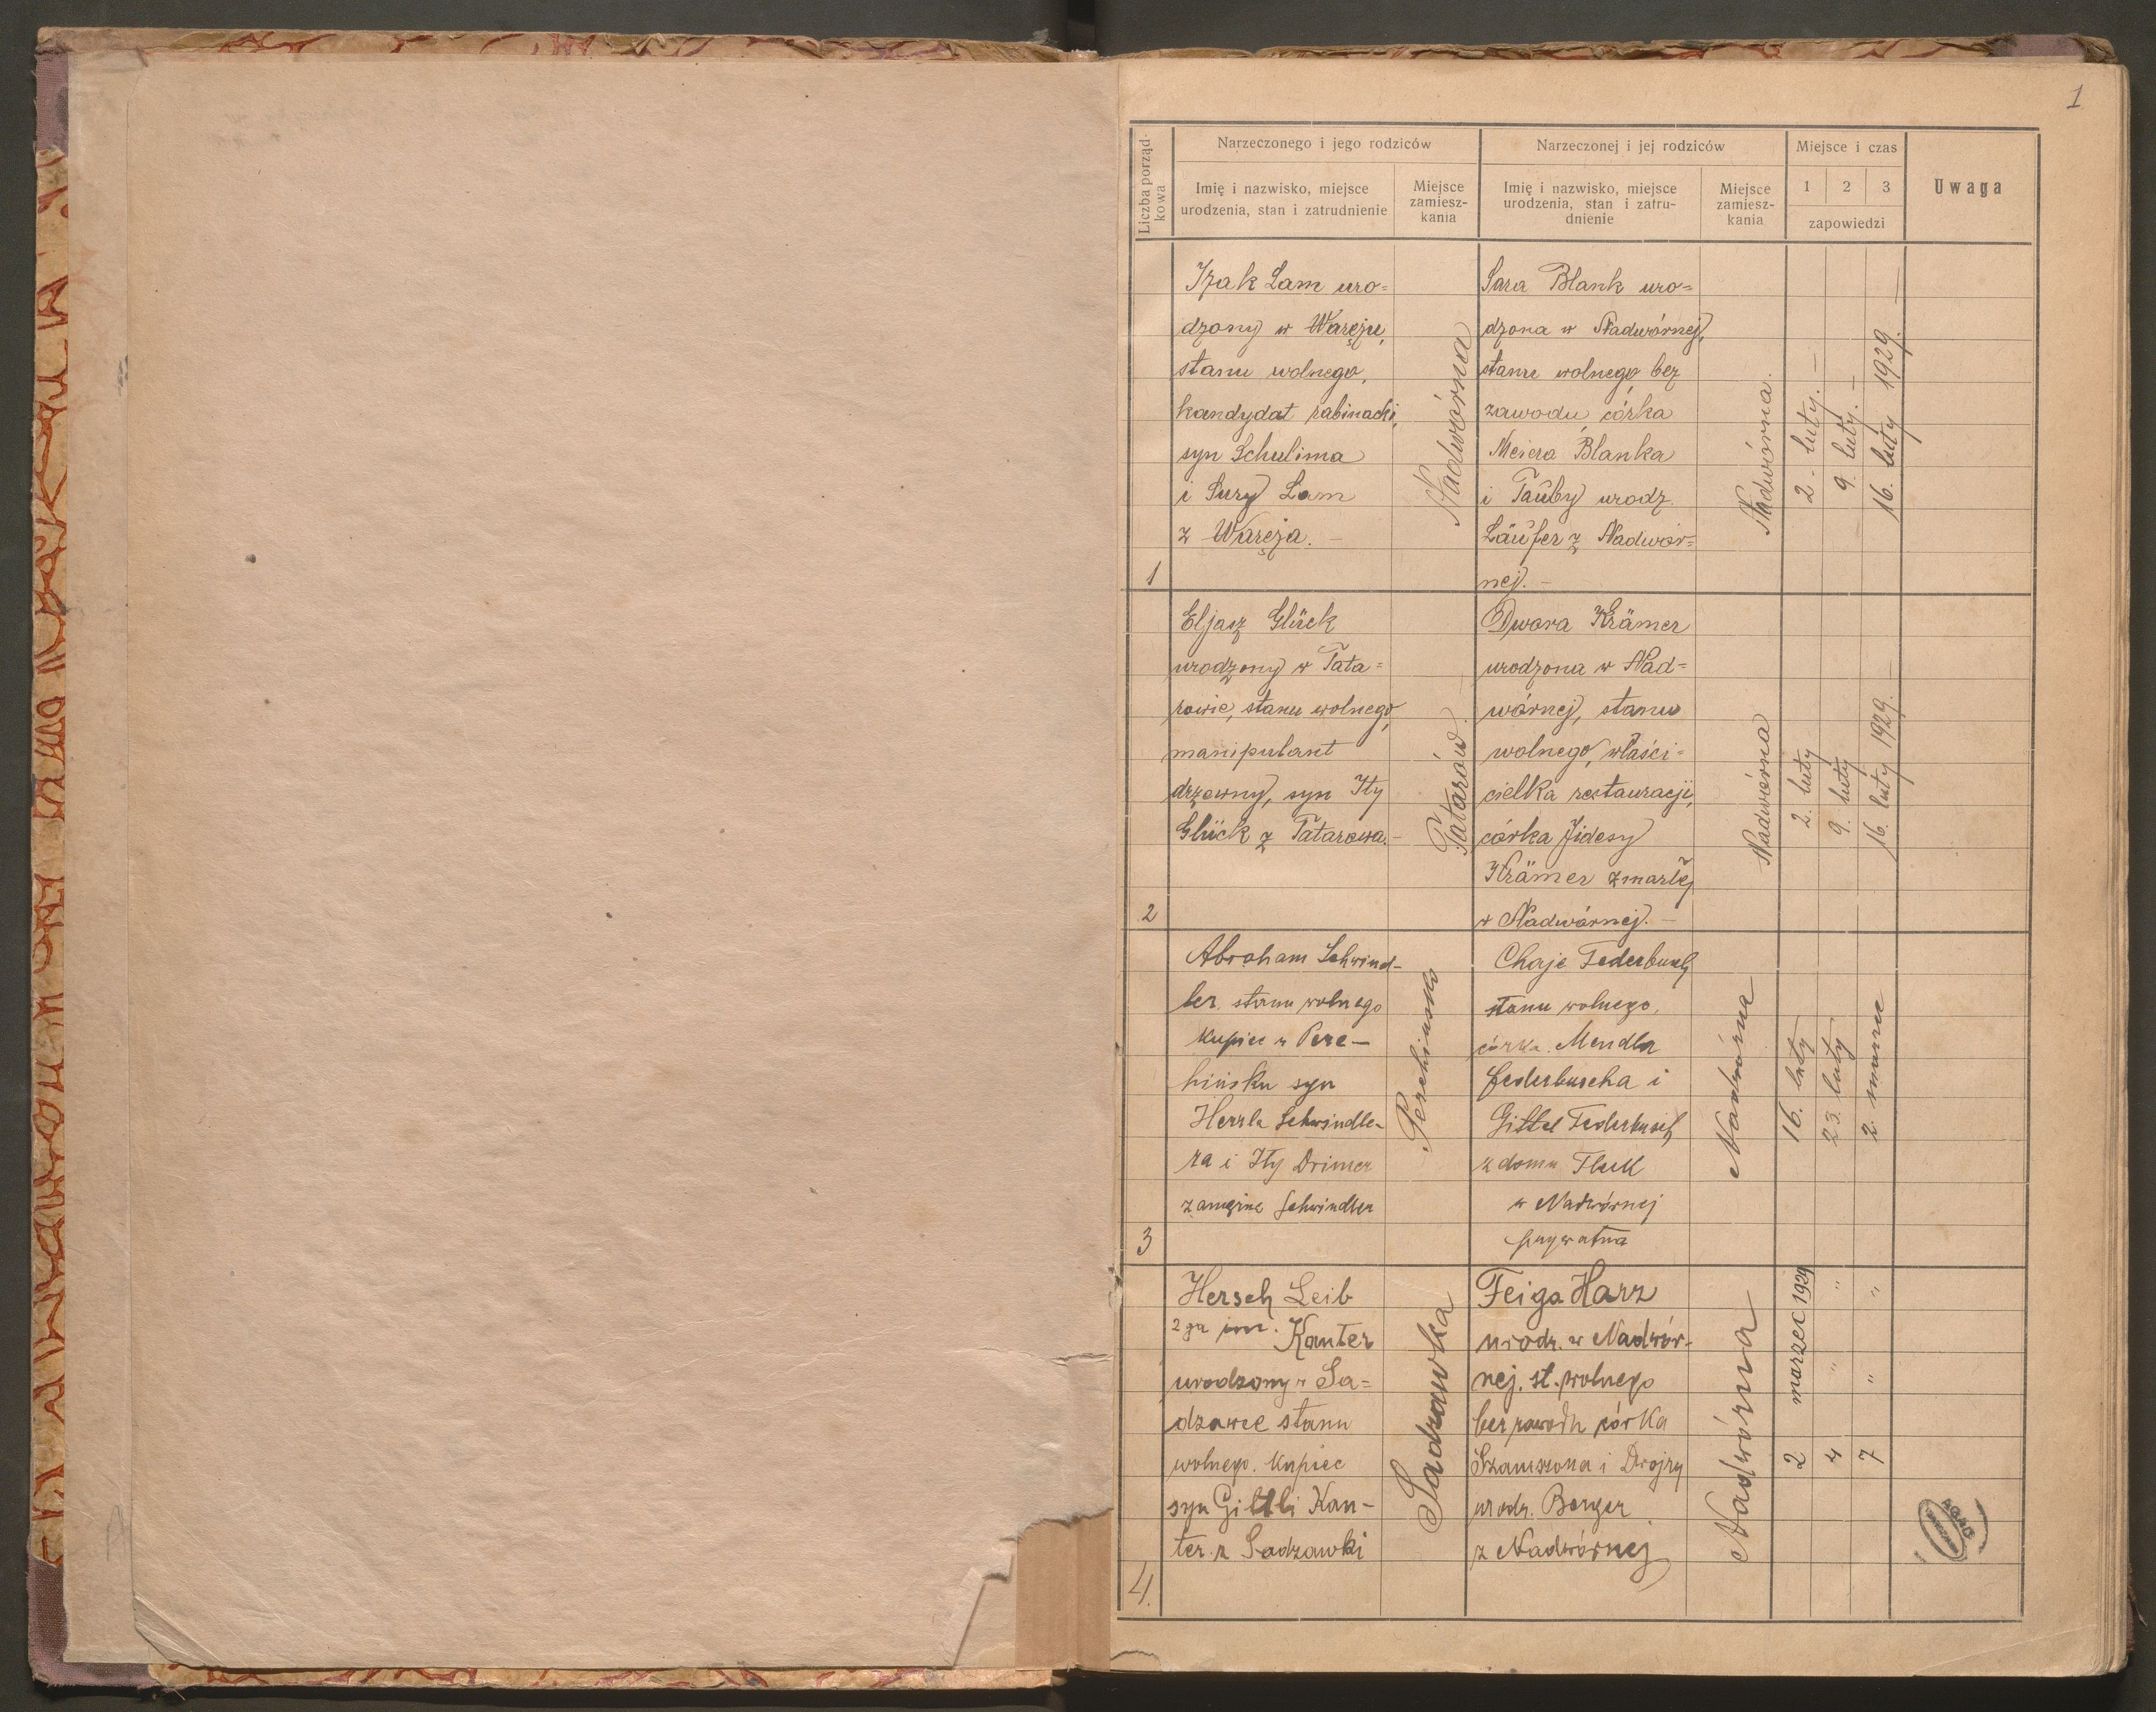 1
Liczba porząd-
kowa
Narzeczonego i jego rodziców
Narzeczonej i jej rodziców
Miejsce i czas
Uwaga
Imię i nazwisko, miejsce
urodzenia, stan i zatrudnienie
Miejsce
zamiesz-
kania
Imię i nazwisko, miejsce
urodzenia, stan i zatru-
dnienie
Miejsce
zamiesz-
kania
1 2 3
zapowiedzi
1
Izak Lam uro=
dzony w Warężu,
stanu wolnego,
kandydat rabinacki,
syn Schulima
i Sury Lam
z Waręża. —
Nadwórna
Sara Blank uro=
dzona w Nadwórnej,
stanu wolnego, bez
zawodu, córka
Meiera Blanka
i Tauby urodz.
Läufer z Nadwór=
nej. —
Nadwórna.
2. luty. —
9. luty. —
16. luty 1929. —
2
Eljasz Glück
urodzony w Tata=
rowie, stanu wolnego,
manipulant
drzewny, syn Ity
Glück z Tatarowa. —
Tatarów
Dwora Krämer
urodzona w Nad=
wórnej, stanu
wolnego, właści=
cielka restauracji,
córka Jidesy
Krämer zmarłej
w Nadwórnej. —
Nadwórna
2. luty
9. luty
16. luty 1929. —
3
Abraham Schwind-
ler. stanu wolnego
kupiec w Pere-
hińsku syn
Herzla Schwindle-
ra i Ity Drimer
zamężna Schwindler
Perehińsko
Chaje Federbusch
stanu wolnego,
córka Mendla
Federbuscha i
Gittel Federbusch
z domu
w Nadwórnej
prywatna
Nadwórna
16. luty
23. luty
2. marec
4.
Hersch Leib
2ga im. Kanter
urodzony w Sa=
dzawce stanu
wolnego. kupiec
syn Gittli Kan-
ter z Sadzawki
Sadzawka
Feiga Harz
urodz. w Nadwór-
nej. st. wolnego
bez zawodu córka
Szamszona i Dwojry
urodz. Berger
z Nadwórnej
Nadwórna
2 marzec 1929
4 " "
7 " "
AGAD